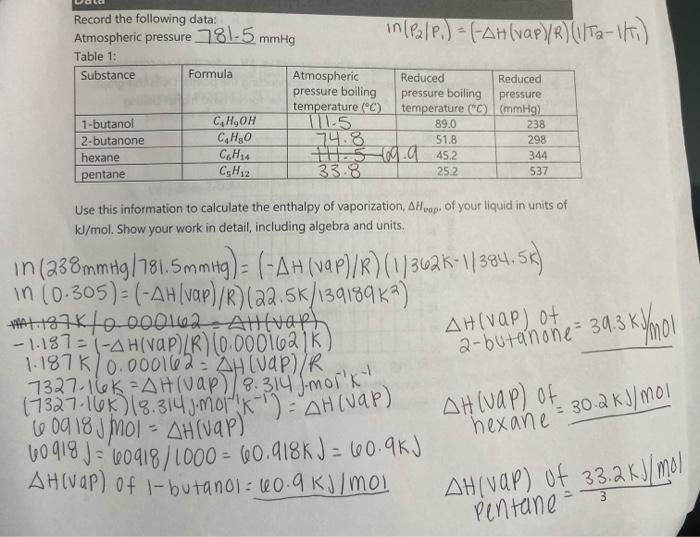 Data
Record the following data:
Atmospheric pressure 781.5 mmHg
in(P₂/P₁) = (-ΔH(vap)/R)(1/T₂-1/T₁)
Table 1:
Substance Formula Atmospheric pressure boiling temperature (°C) Reduced pressure boiling temperature (°C) Reduced pressure (mmHg)
1-butanol C₄H₉OH 111.5 89.0 238
2-butanone C₄H₈O 74.8 51.8 298
hexane C₆H₁₄ 111.5 69.9 45.2 344
pentane C₅H₁₂ 33.8 25.2 537
Use this information to calculate the enthalpy of vaporization, ΔHvap, of your liquid in units of
kJ/mol. Show your work in detail, including algebra and units.
in(238mmHg/781.5mmHg) = (-ΔH(vap)/R)(1/362K-1/384.5K)
in (0.305) = (-ΔH(vap)/R)(22.5K/139189K²)
1.187K/0.000162 = ΔH(vap)
-1.187 = (-ΔH(vap)/R)(0.000162/K)
1.187K/0.000162 = ΔH(vap)/R
7327.16K = ΔH(vap)/8.314J·mol⁻¹K⁻¹
(7327.16K)(8.314J·mol⁻¹K⁻¹) = ΔH(vap)
60918J/mol = ΔH(vap)
60918J = 60918/1000 = 60.918KJ = 60.9KJ
ΔH(vap) of 1-butanol = 60.9 KJ/mol
ΔH(vap) of 2-butanone = 39.3 KJ/mol
ΔH(vap) of hexane = 30.2 KJ/mol
ΔH(vap) of pentane = 33.2 KJ/mol
3